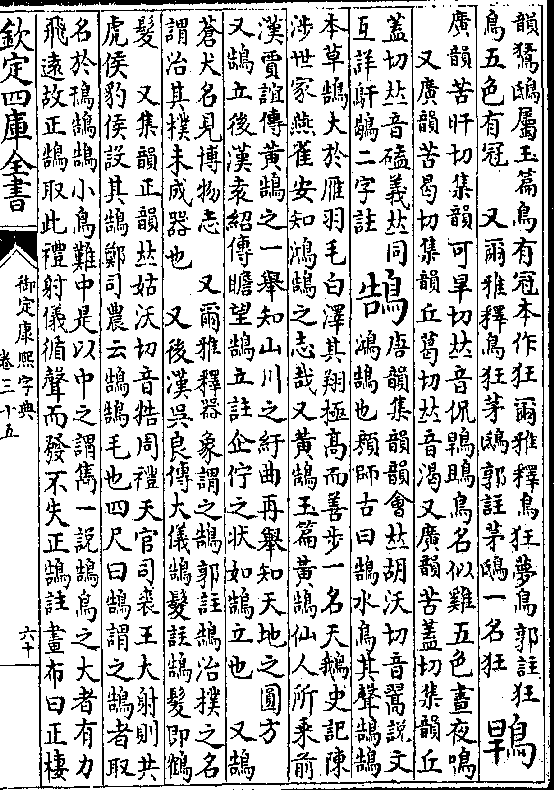 韻鵟鴟屬玉篇鳥有冠本作狂爾雅釋鳥狂㝱鳥郭註狂
鳥五色有冠　又爾雅釋鳥狂茅鴟郭註茅鴟一名狂　䳚
廣韻苦旰切集韻可旱切𠀤音侃鶡鴠鳥名似雞五色晝夜鳴
又廣韻苦曷切集韻丘葛切𠀤音渴又廣韻苦蓋切集韻丘
蓋切𠀤音磕義𠀤同
互詳鳱鶡二字註　鵠　唐韻集韻韻會𠀤胡沃切音翯說文
鴻鵠也顏師古曰鵠水鳥其聲鵠鵠
本草鵠大於雁羽毛白澤其翔極高而善步一名天鵝史記陳
涉世家燕雀安知鴻鵠之志哉又黃鵠玉篇黃鵠仙人所乘前
漢賈誼傳黃鵠之一舉知山川之紆曲再舉知天地之圓方
又鵠立後漢袁紹傳瞻望鵠立註企佇之狀如鵠立也　又鵠
蒼犬名見博物志　又爾雅釋器象謂之鵠郭註鵠治樸之名
謂治其樸未成器也　又後漢吳良傳大儀鵠髮註鵠髮即鶴
髮　又集韻正韻𠀤姑沃切音牿周禮天官司裘王大射則共
虎侯豹侯設其鵠鄭司農云鵠鵠毛也四尺曰鵠謂之鵠者取
名於鳱鵠鵠小鳥難中是以中之謂雋一說鵠鳥之大者有力
飛遠故正鵠取此禮射儀循聲而發不失正鵠註畫布曰正棲
欽定四庫全書
御定康熙字典
卷三十五
六十